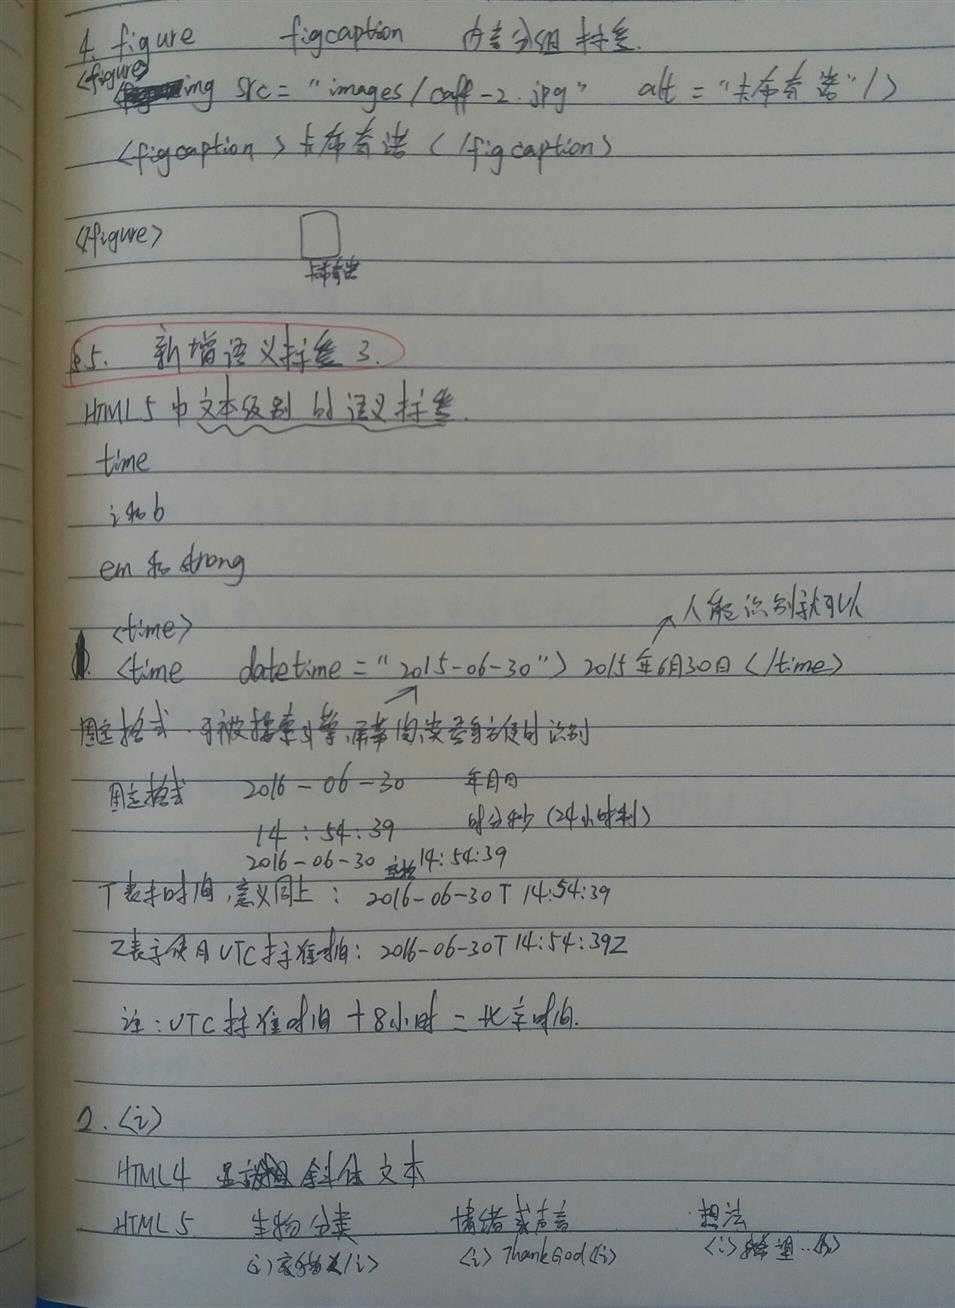 4. figure figcaption 内容分组标签.
<figure>
img src = "images/caff-2.jpg" alt = "卡布奇诺"/>
<figcaption>卡布奇诺</figcaption>
</figure>
卡布奇诺
5. 新增语义标签 3.
HTML5中文本级别的语义标签.
time
i和b
em和strong
<time>
人能识别就可以
1. <time datetime = "2015-06-30">2015年6月30日</time>
固定格式.可被搜索引擎,屏幕阅读器方便的识别
固定格式 2016-06-30 年月日
14:54:39 时分秒(24小时制)
2016-06-30 14:54:39
T表示时间,意义同上: 2016-06-30T14:54:39
Z表示使用UTC标准时间: 2016-06-30T14:54:39Z
注:UTC标准时间+8小时=北京时间.
2. <i>
HTML4 显示 斜体文本
HTML5 生物分类 情绪或声音 想法
<i> </i> <i>ThankGod</i> <i>希望..</i>